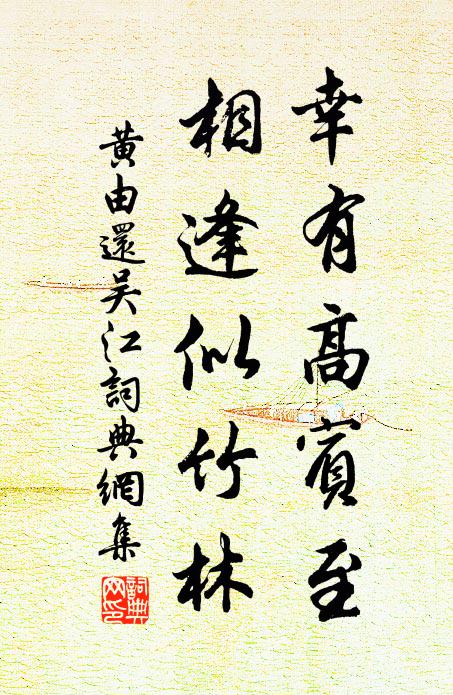 幸有高賓至
相逢似竹林
黄由還吴江詞典網集
詞典网印